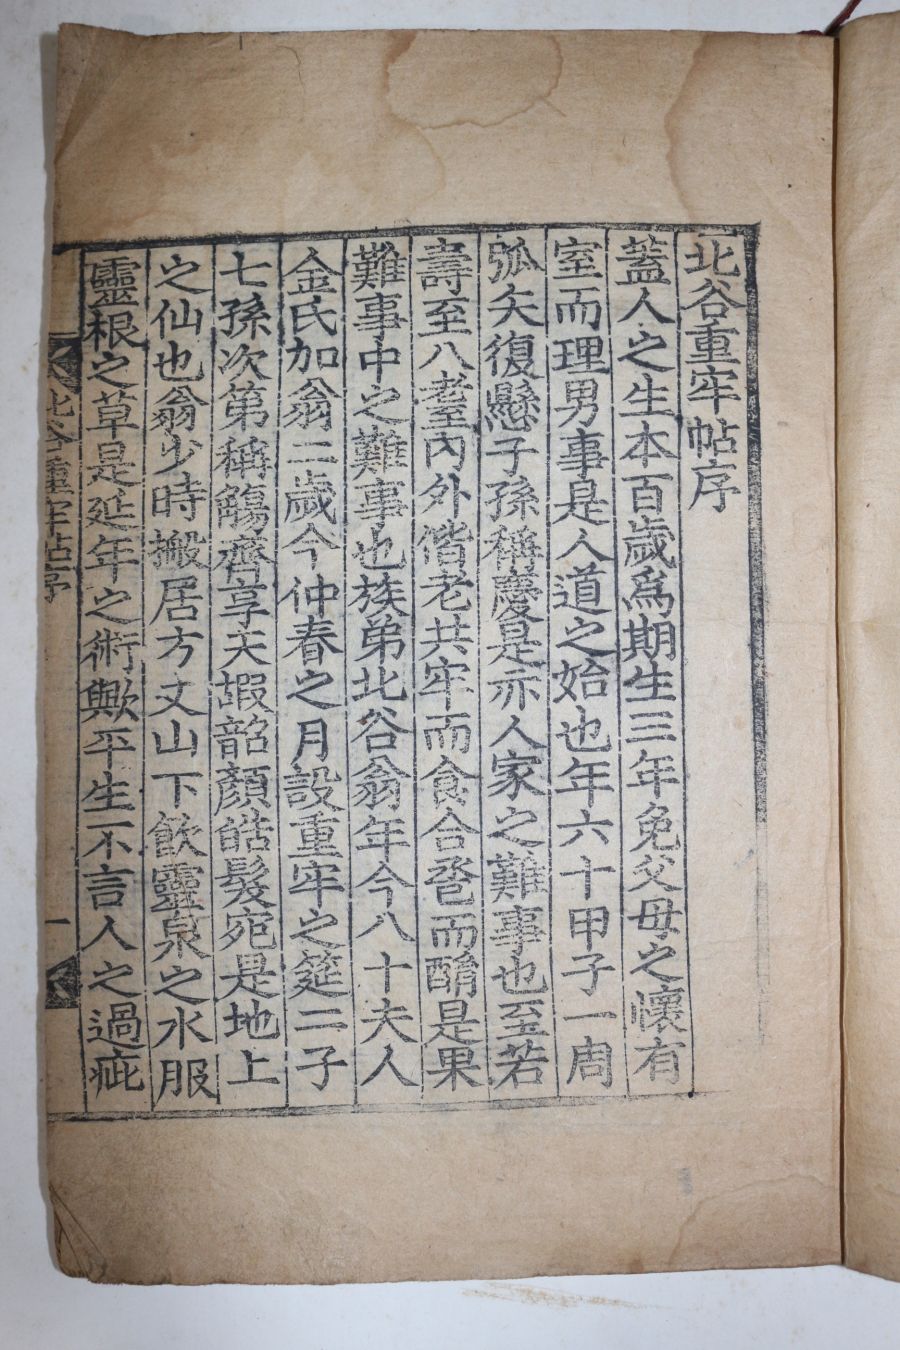 北谷重牢帖序
蓋人之生本百歲爲期生三年免父母之懷有
室而理男事是人道之始也年六十甲子一周
弧矢復懸子孫稱慶是亦人家之難事也至若
壽至八耋內外偕老共牢而食合巹而酳是果
難事中之難事也族弟北谷翁年今八十夫人
金氏加翁二歲今仲春之月設重牢之筵二子
七孫次第稱觴齊享天嘏韶顏皓髮宛是地上
之仙也翁少時搬居方丈山下飮靈泉之水服
靈根之草是延年之術歟平生不言人之過疵
北谷重牢帖序 一